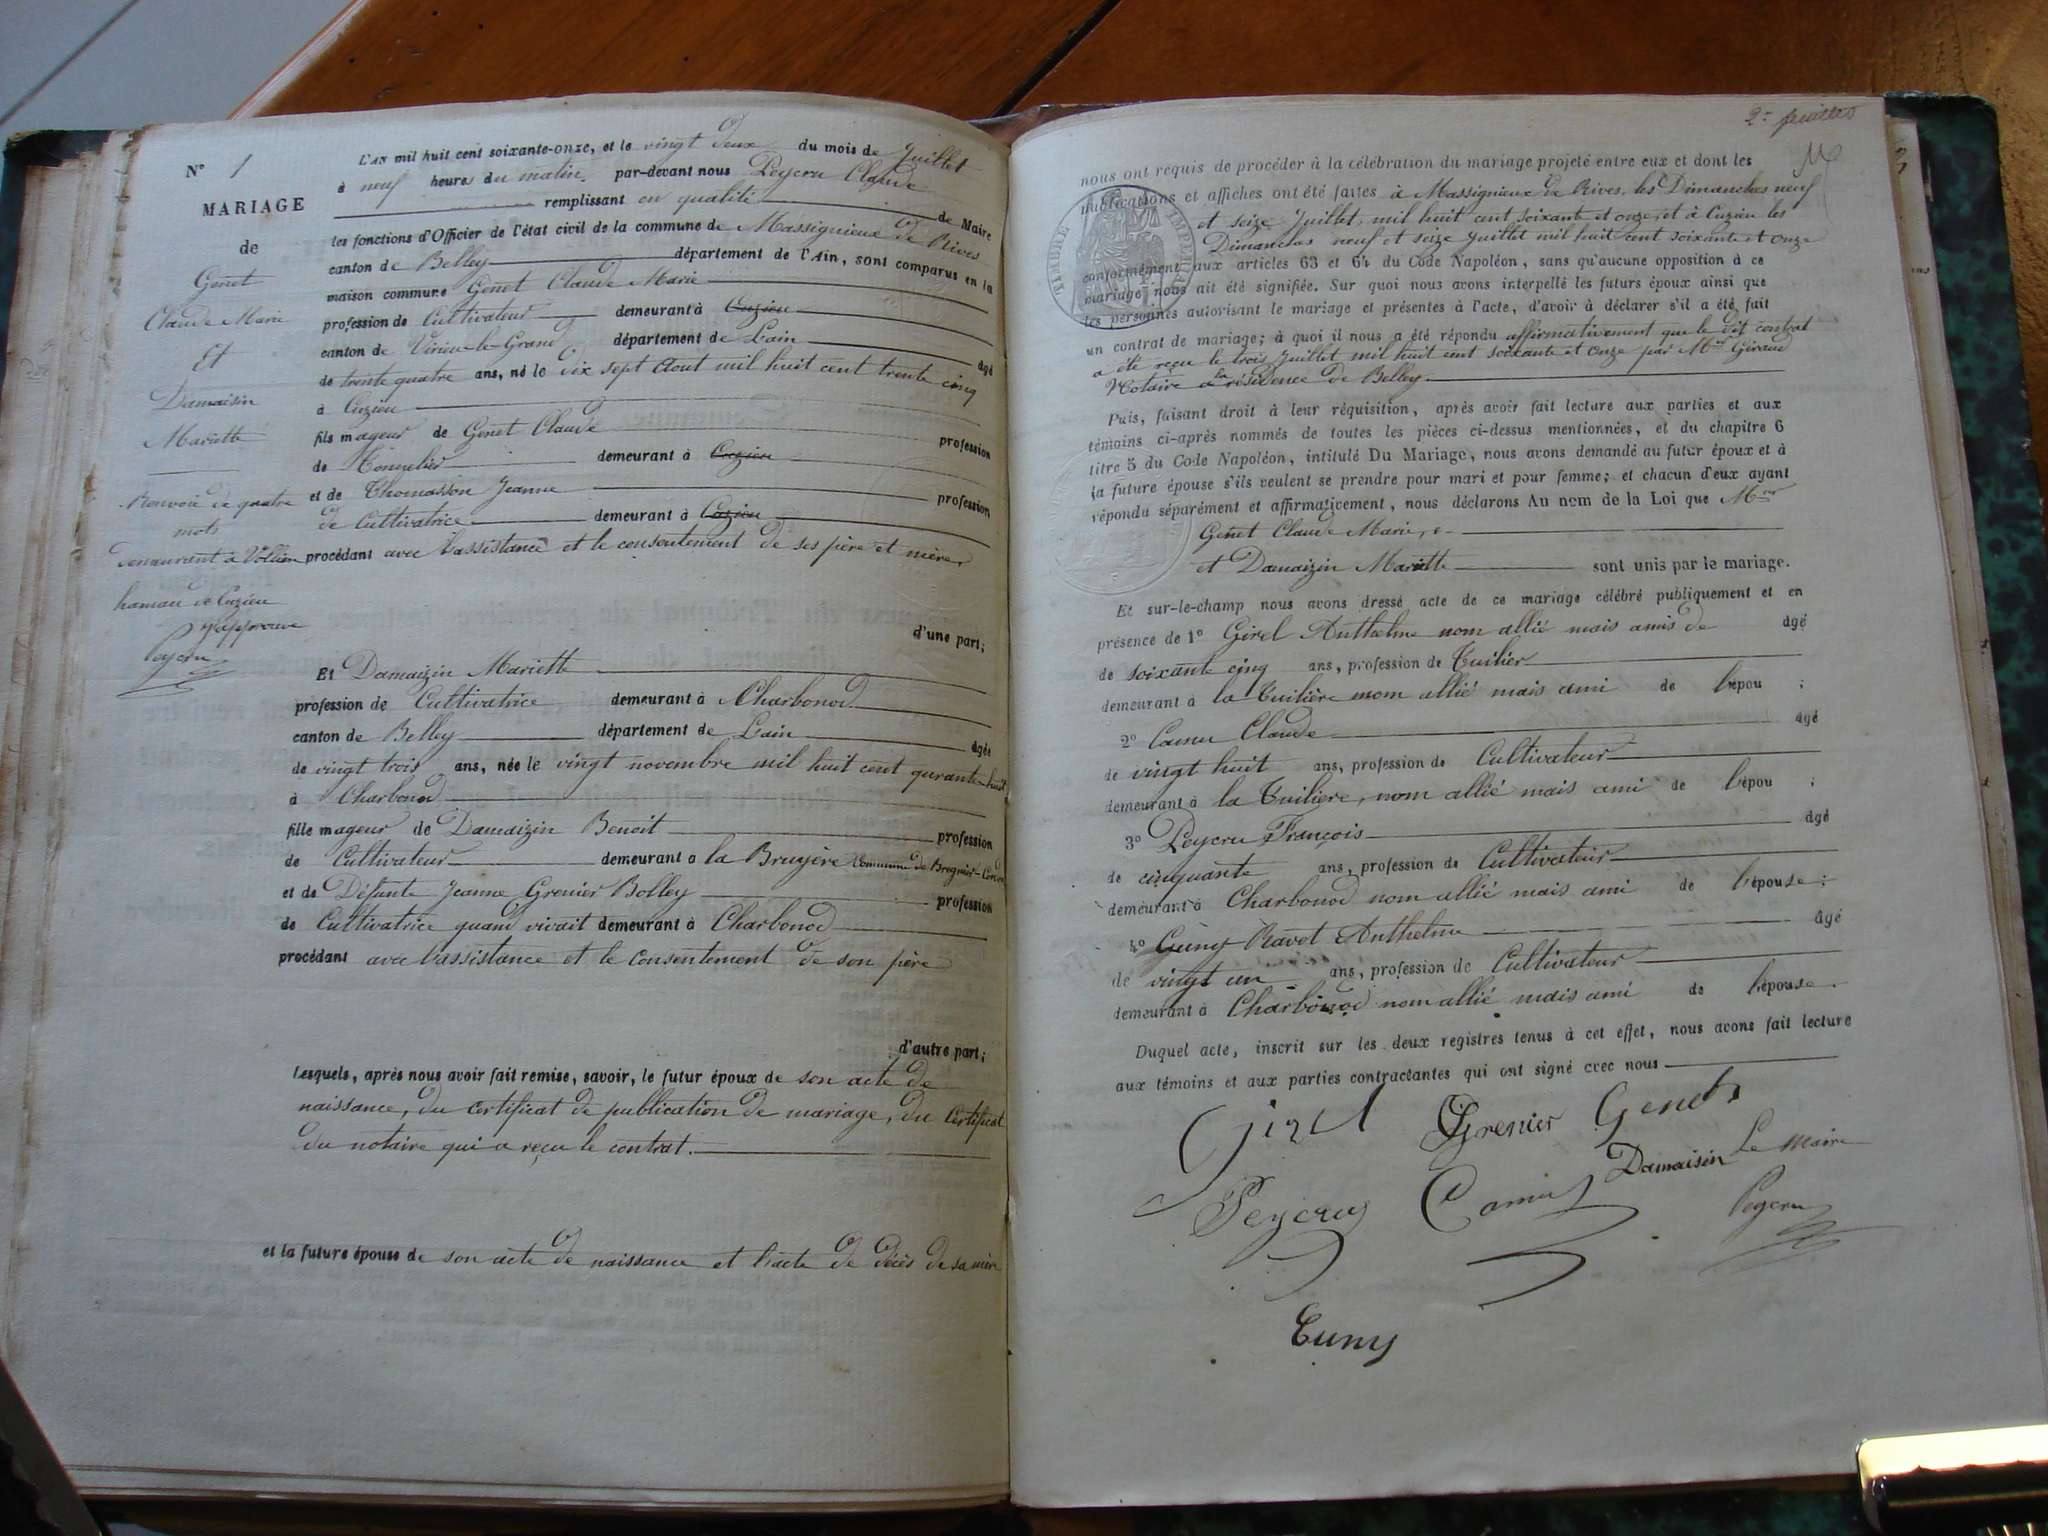 N° 1
MARIAGE
de
Genet
Claude Marie
Et
Damaisin
Mariette
Renvoie de quatre
mots
demeurant à Vollien
hameau de Cuzieu
J'approuve
Peycru
L'AN mil huit cent soixante-onze, et le vingt deux du mois de Juillet
à neuf heures du matin, par-devant nous Peycru Claude
remplissant en qualité de Maire
les fonctions d'Officier de l'état civil de la commune de Massignieux de Rives
canton de Belley département de l'Ain, sont comparus en la
maison commune Genet Claude Marie
profession de Cultivateur demeurant à Cuzieu
canton de Virieu-le-Grand département de Lain âgé
de trente quatre ans, né le dix sept Aout mil huit cent trente cinq
à Cuzieu
fils mageur de Genet Claude profession
de Tonnelier demeurant à Cuzieu
et de Thomasson Jeanne profession
de Cultivatrice demeurant à Cuzieu
procédant avec l'assistance et le consentement de ses père et mère,
d'une part;
Et Damaizin Mariette
profession de Cultivatrice demeurant à Charbonod
canton de Belley département de Lain âgée
de vingt trois ans, née le vingt novembre mil huit cent qurante-huit
à Charbonod
fille mageur de Damaizin Benoit profession
de Cultivateur demeurant a la Bruyère Commune de Bregnier-Cordon
et de Défunte Jeanne Grenier Bolley profession
de Cultivatrice quand vivait demeurant à Charbonod
procédant avec l'assistance et le consentement de son père
d'autre part;
Lesquels, après nous avoir fait remise, savoir, le futur époux de son acte de
naissance, du certificat de publication de mariage, du Certificat
du notaire qui a reçu le contrat.
et la future épouse de son acte de naissance et l'acte de décès de sa mère
2e feuillet
nous ont requis de procéder à la célébration du mariage projeté entre eux et dont les
publications et affiches ont été faites à Massignieux de Rives, les Dimanches neuf
et seize Juillet mil huit cent soixante et onze, et à Cuzieu les
Dimanches neuf et seize Juillet mil huit cent soixante et onze
TIMBRE IMPERIAL
conformément aux articles 63 et 64 du Code Napoléon, sans qu'aucune opposition à ce
mariage nous ait été signifiée. Sur quoi nous avons interpellé les futurs époux ainsi que
les personnes autorisant le mariage et présentes à l'acte, d'avoir à déclarer s'il a été fait
un contrat de mariage; à quoi il nous a été répondu affirmativement que le dit contrat
a été reçu le trois Juillet mil huit cent soixante et onze par Me Giraud
Notaire a la résidence de Belley.
Puis, faisant droit à leur réquisition, après avoir fait lecture aux parties et aux
témoins ci-après nommés de toutes les pièces ci-dessus mentionnées, et du chapitre 6
titre 5 du Code Napoléon, intitulé Du Mariage, nous avons demandé au futur époux et à
la future épouse s'ils veulent se prendre pour mari et pour femme; et chacun d'eux ayant
répondu séparément et affirmativement, nous déclarons Au nom de la Loi que Mr
Genet Claude Marie,
et Damaizin Mariette sont unis par le mariage.
Et sur-le-champ nous avons dressé acte de ce mariage célébré publiquement et en
présence de 1° Girel Anthelme nom allié mais amis de âgé
de soixante cinq ans, profession de Tuilier
demeurant à la Tuilière nom allié mais ami de l'épou ;
2° Camu Claude âgé
de vingt huit ans, profession de Cultivateur
demeurant à la Tuiliere, nom allié mais ami de l'épou ;
3° Peycru François âgé
de cinquante ans, profession de Cultivateur
demeurant à Charbonod nom allié mais ami de l'épouse;
4° Guny Ravot Anthelme âgé
de vingt un ans, profession de Cultivateur
demeurant à Charbonod nom allié mais ami de l'épouse.
Duquel acte, inscrit sur les deux registres tenus à cet effet, nous avons fait lecture
aux témoins et aux parties contractantes qui ont signé avec nous
Girel Grenier Genet
Damaisin Le Maire
Peycru Camu Peycru
Cuny